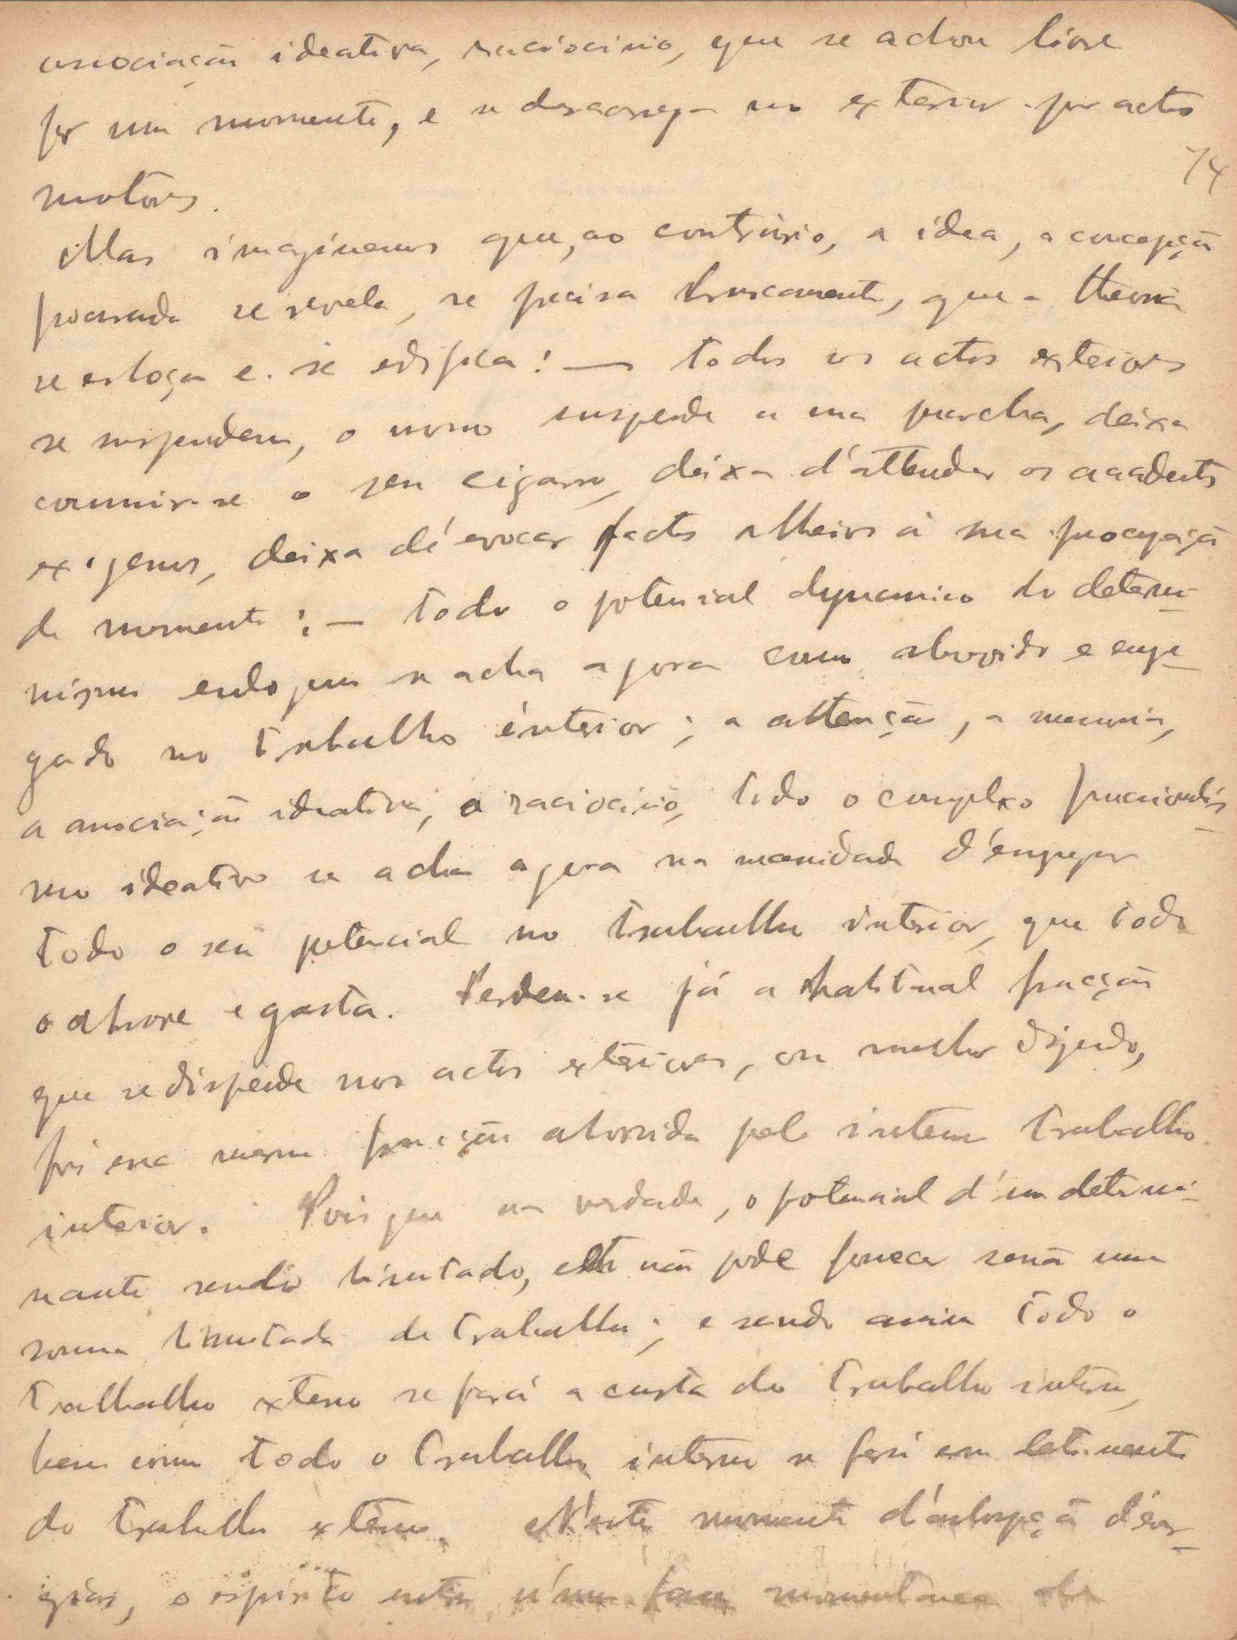 associação ideativa, raciocinio, que se achou livre
por um momento, e se descarrega no exterior por actos
74
motores.
Mas imaginemos que, ao contrário, a idea, a concepção
procurada se revela, se precisa bruscamente, que a theoria
se esboça e se edifica: — todos os actos exteriores
se suspendem, o nosso suspende a sua marcha, deixa
consumir-se o seu cigarro, deixa d'attender os accidentes
exogenos, deixa d'evocar factos alheios á sua preocupação
do momento: — todo o potencial dynamico do determi-
nismo endogeno se acha agora como absorvido e empre-
gado no trabalho interior; a attenção, a memoria,
a associação ideativa, o raciocinio, todo o complexo funcionalis-
mo ideativo se acha agora na necessidade d'empregar
todo o seu potencial no trabalho interior, que todo
o absorve e gasta. Perdeu-se já a habitual fracção
que se dispende nos actos exteriores, ou melhor dizendo,
foi essa mesma fracção absorvida pelo intenso trabalho
interior. Pois que na verdade, o potencial d'um determi-
nante sendo limitado, este não póde fornecer senão uma
somma limitada de trabalho; e sendo assim todo o
tralbalho externo se fará a custa do trabalho interno,
bem como todo o trabalho interno se fará em detrimento
do trabalho externo. N'este momento d'absorpção d'ener-
gias, o espirito entra n'uma fase momentanea de